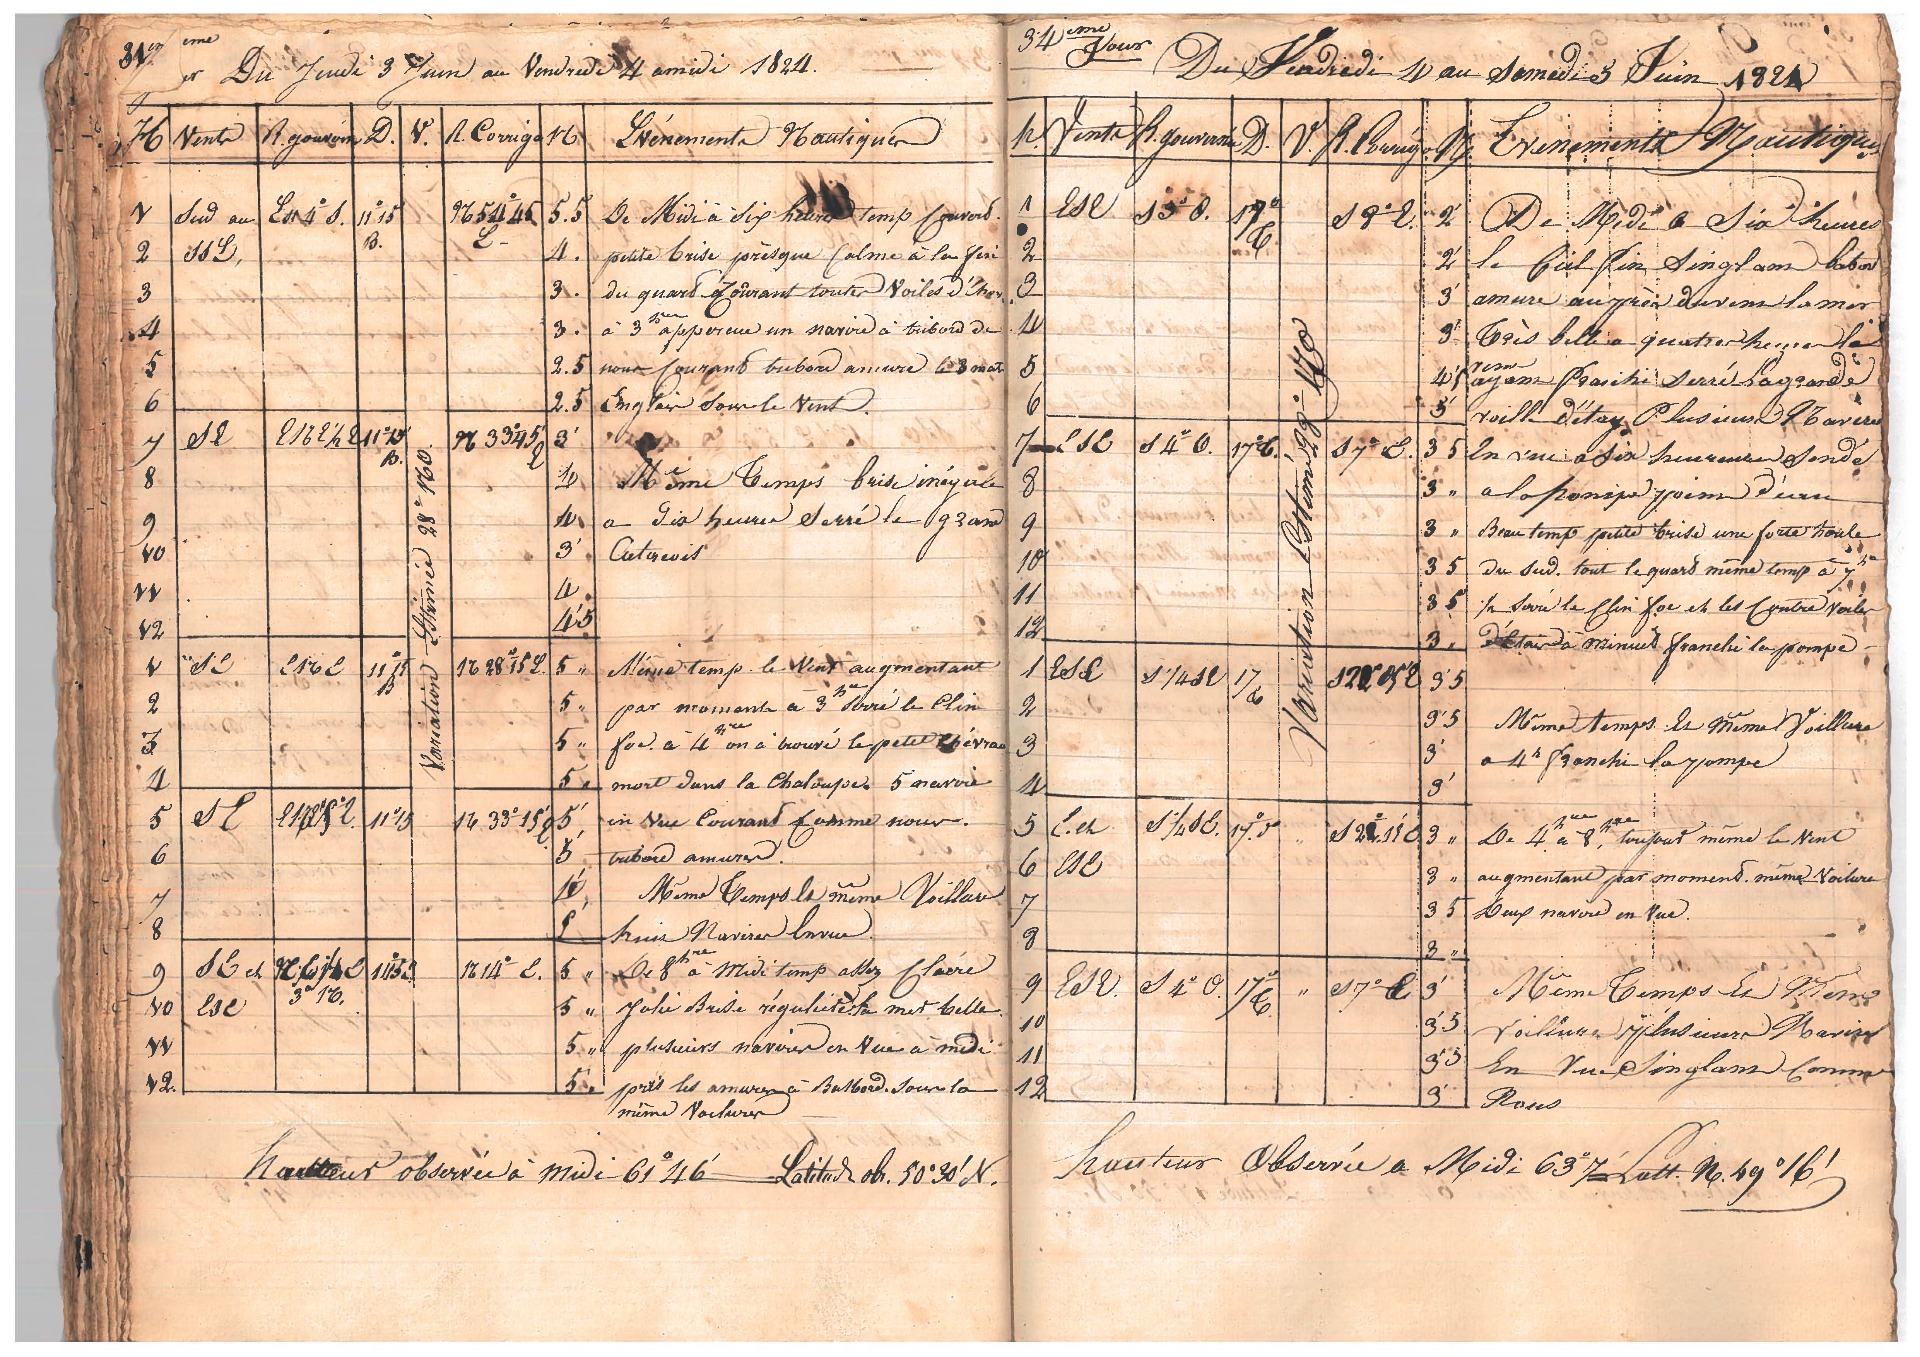 eme
Du Jeudi 3 Juin au Vendredi 4 a midi 1824.
H Vents R. gouvern D. V. R. Corrigé N Evénements Nautiques
1 Sud au Est 4° S. 11°15 N 54°45 5.5 De Midi à Six heures temp Couvert.
2 SSE, B. E 4. petite brise présque Calme à la fin
3 3. du quard Courant toutes Voiles d'hor.
4 3. à 3 hre apperçue un navire à tribord de
5 2.5 nous Courant tribord amure le 3 mat
6 2.5 Englais Sous le Vent.
7 SE ENE ½ E 11°15' B. N 33°45' E 3'
8 4 Même Temps brise inégule
9 4. a Dix heures Serré le grand
10 3' Catacois
11 4.
12 4'5
Variation Estimée 28° NO.
1 SE ENE 11°15 B N 28°15 E 5 " Même temp le Vent augmentant
2 5 " par moments à 3 hre Serré le Clin
3 5 " foc. à 4 hre on à trouvé le petit Chévrau
4 5 " mort dans la Chaloupe 5 navire
5 SE 11°15 N 33°15' E 5' in Vue Courant Comme nous.
6 5 tribord amures.
7 Même Temps Et même Voillure
8 huit Navires Envue
9 SE et N 14° E. 5 " De 8 hre à Midi temp assez Claire
10 ESE 3° N. 5 " Jolie Brise régulière la mer belle
11 5 " plusieurs navires en Vue à midi
12 5. pris les amures à Babord. Sous la
même Voilures
hauteur observée à midi 61°46' Latitude ob. 50°30' N.
34 eme Jour
Du Vendredi 4 au Samedi 5 Juin 1824
h. Vents R. gouverné D. V. R. Corrigé N. Evenements Nautiques
1 ESE S 3° O. 17° E S 8° E. 2' De Midi a Six heures
2 2' le Ciel fin Singlant babord
3 3' amure au près du vent la mer
4 3' Très belle a quatre heures la
5 4'5 ayant Franchi Serré la grande
6 3' voille d'étay Plusieurs Navires
7 ESE S 4° O. 17° E. S 7° E. 3 5 En vue a Six heures Sondé
8 3 " a la Pompe point d'eau
9 3 " Beau temp petite brise une forte houle
10 3 5 du Sud. tout le quard même temp à 7 hre
11 3 5 ½ Serré le Clin foc et les Contre Voiles
12 3 " d'Etai à minuit franchi la pompe
Variation Estimée 28° NO
1 ESE S ¼ SE 17 E 3'5
2 3'5 Même temps Et même Voillure
3 3' a 4 h franchi la pompe
4 3'
5 E. et S ¼ SE. 17° " 3 " De 4 hre à 8 hre, toujour même le Vent
6 ESE 3 " augmentant par moment. même Voilure
7 3 5 Deux navire en Vue.
8 3 "
9 ESE. S 4° O. 17° E " S 7° E 3' Même Temps Et Même
10 3'5 voillure plusieurs Navires
11 3'5 En Vue Singlant Comme
12 3' Nous
hauteur Observée a Midi 63°7' Latt. N. 49°16'